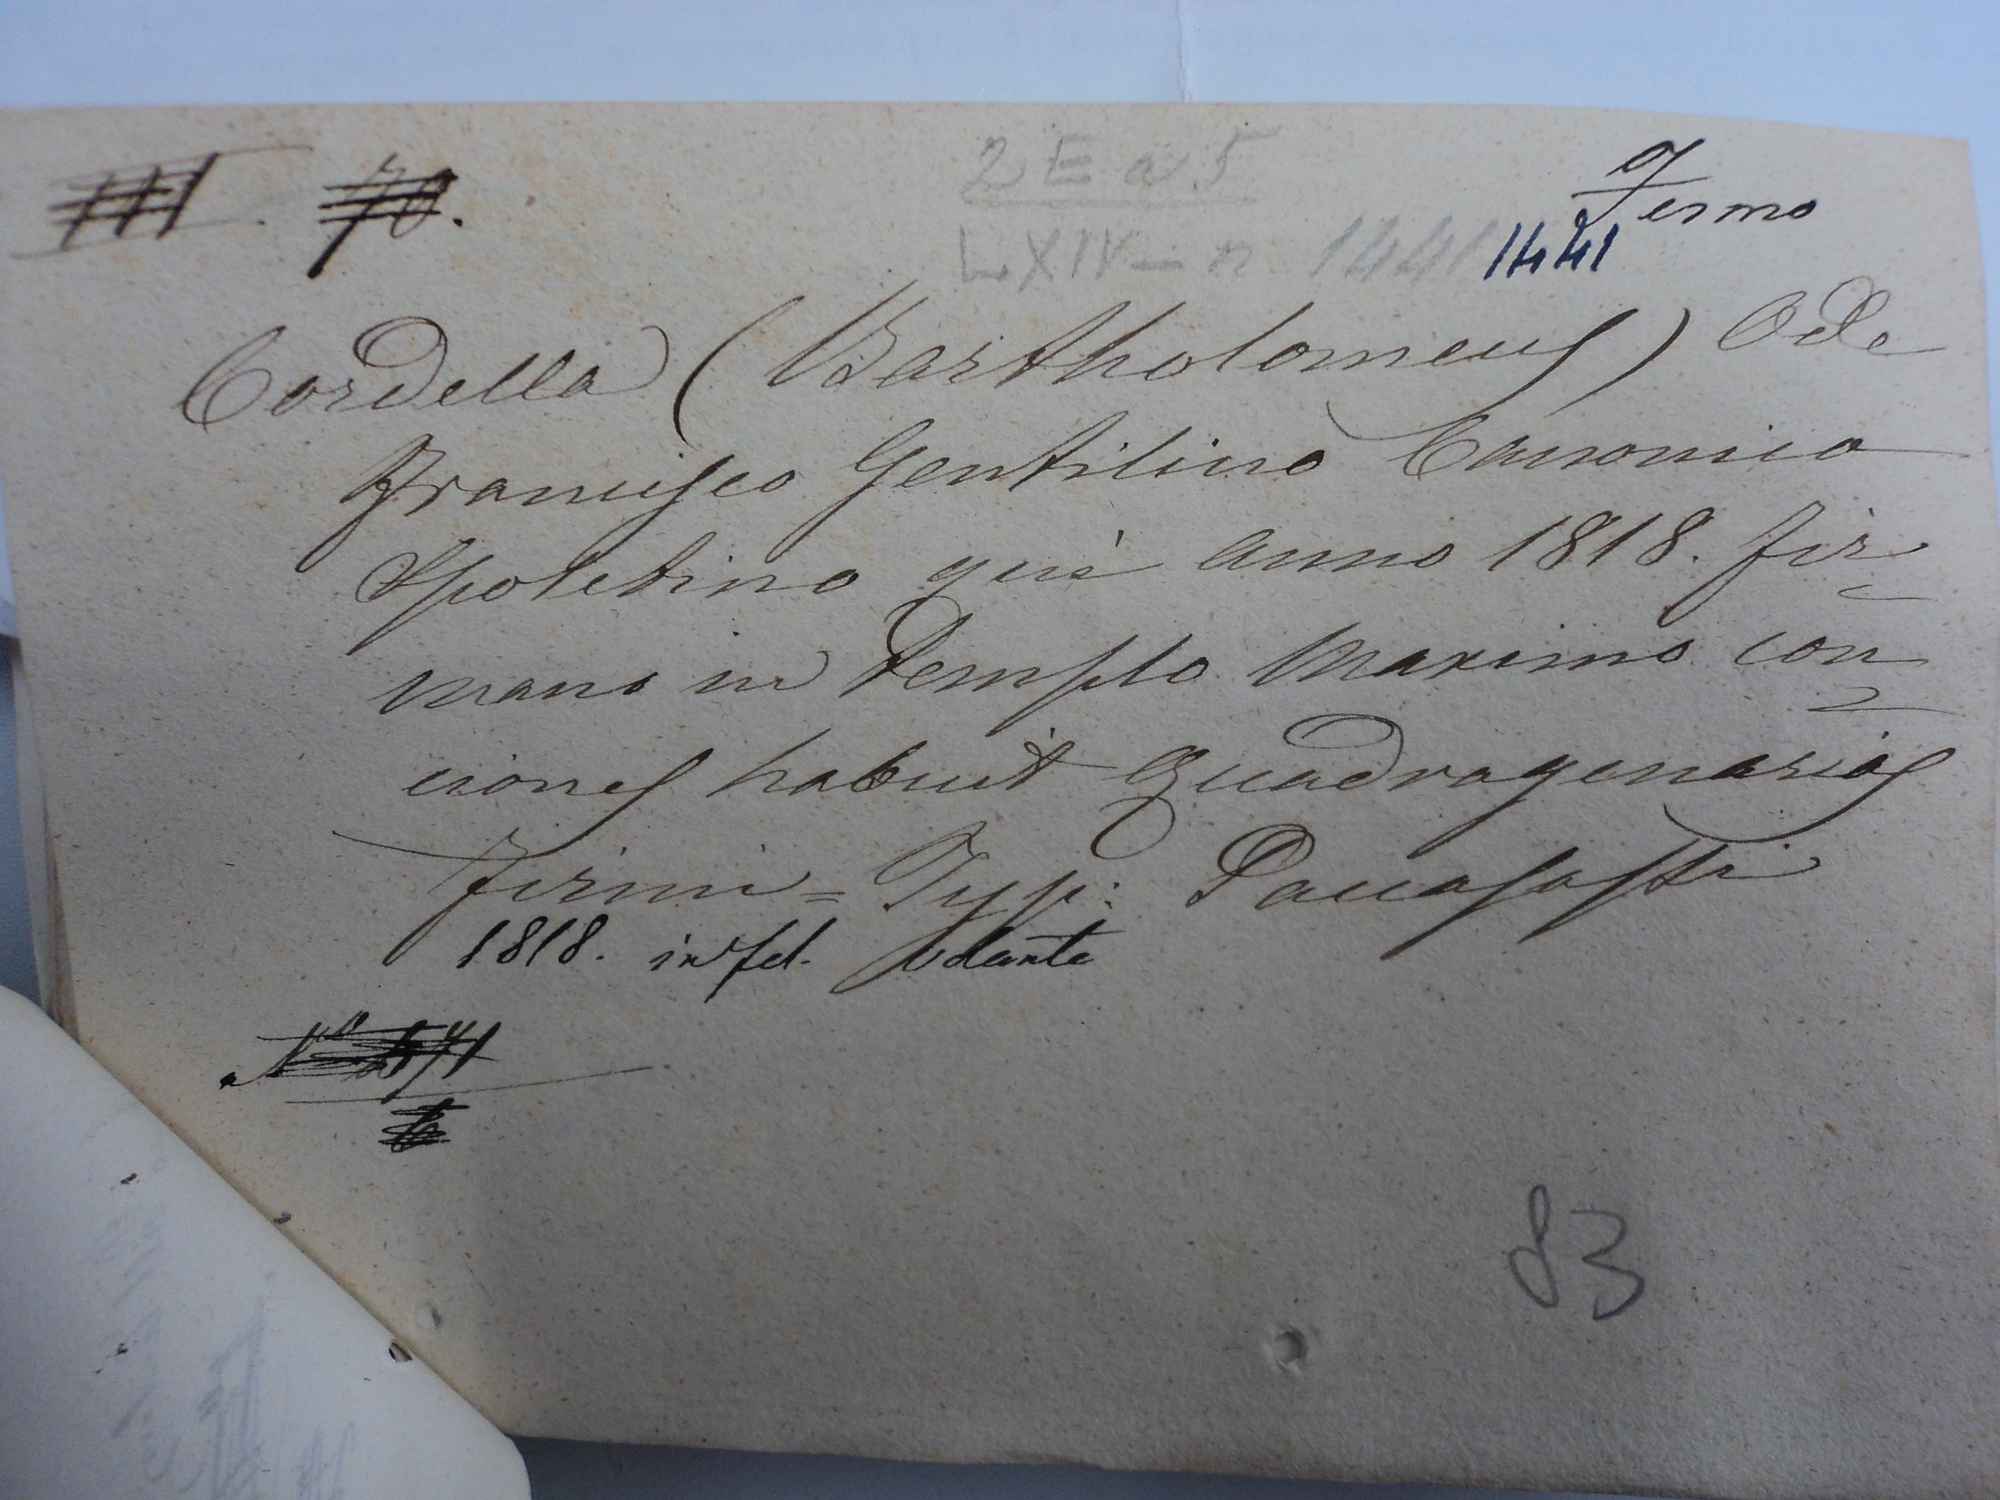 III. 70.
2 E a 5
Fermo
LXIV - n 1441 1441
Cordella (Bartholomeus) Ode
Francisco Gentilino Canonico
Spoletino qui anno 1818. Fir=
mano in Templo Maximo con=
ciones habuit Quadragenarias
Firmi = Typ: Paccasassi
1818. in fol. volante
83